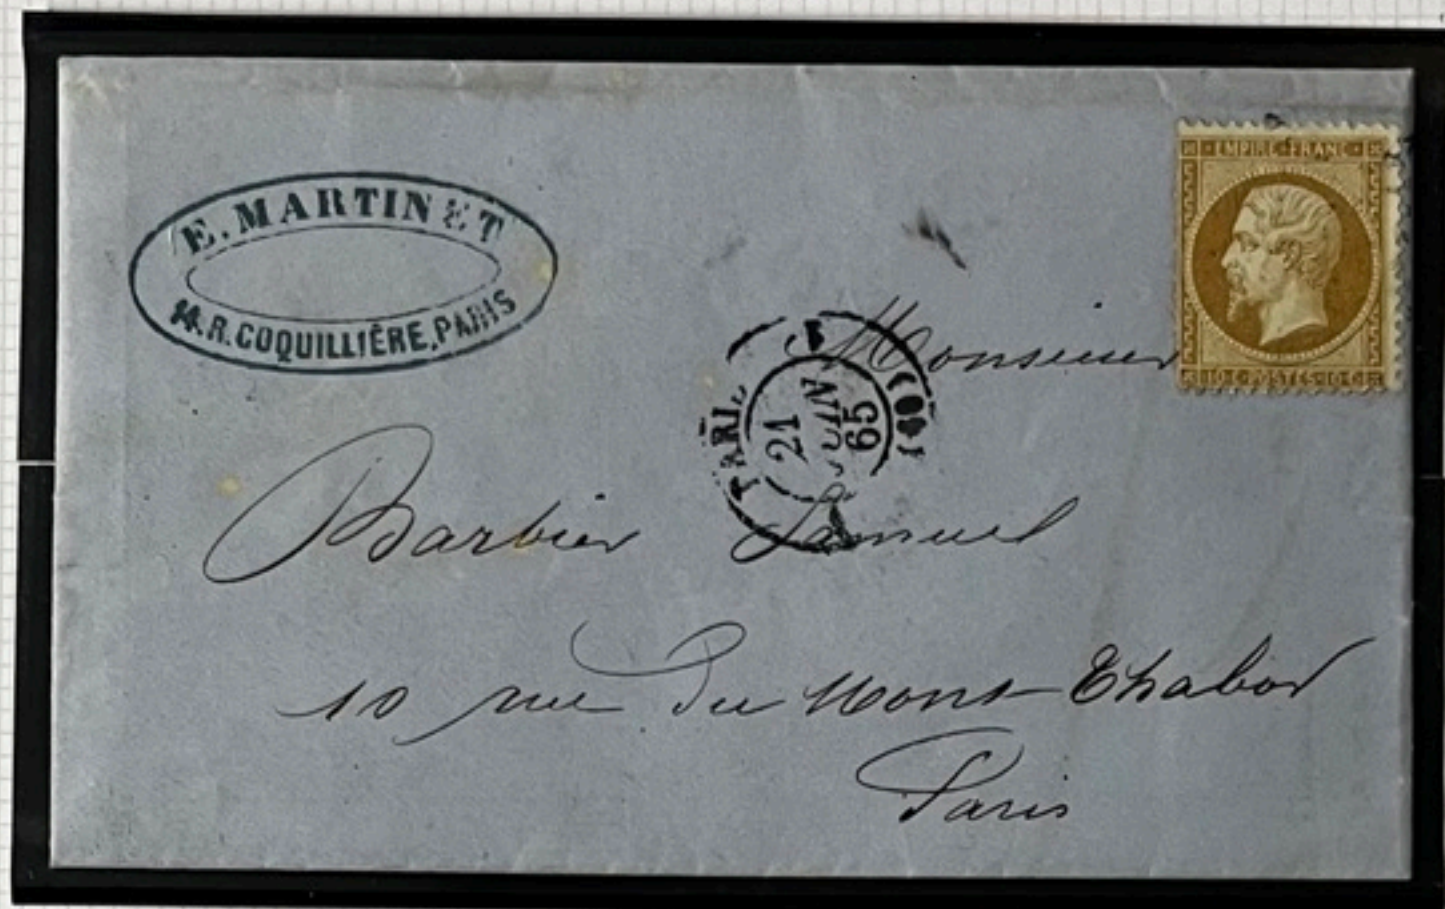 E. MARTINET
14. R. COQUILLIÈRE, PARIS
EMPIRE FRANC
10 C. POSTES 10 C.
21
JUIN
65
Monsieur
Barbier Samuel
10 rue du Mont Thabor
Paris